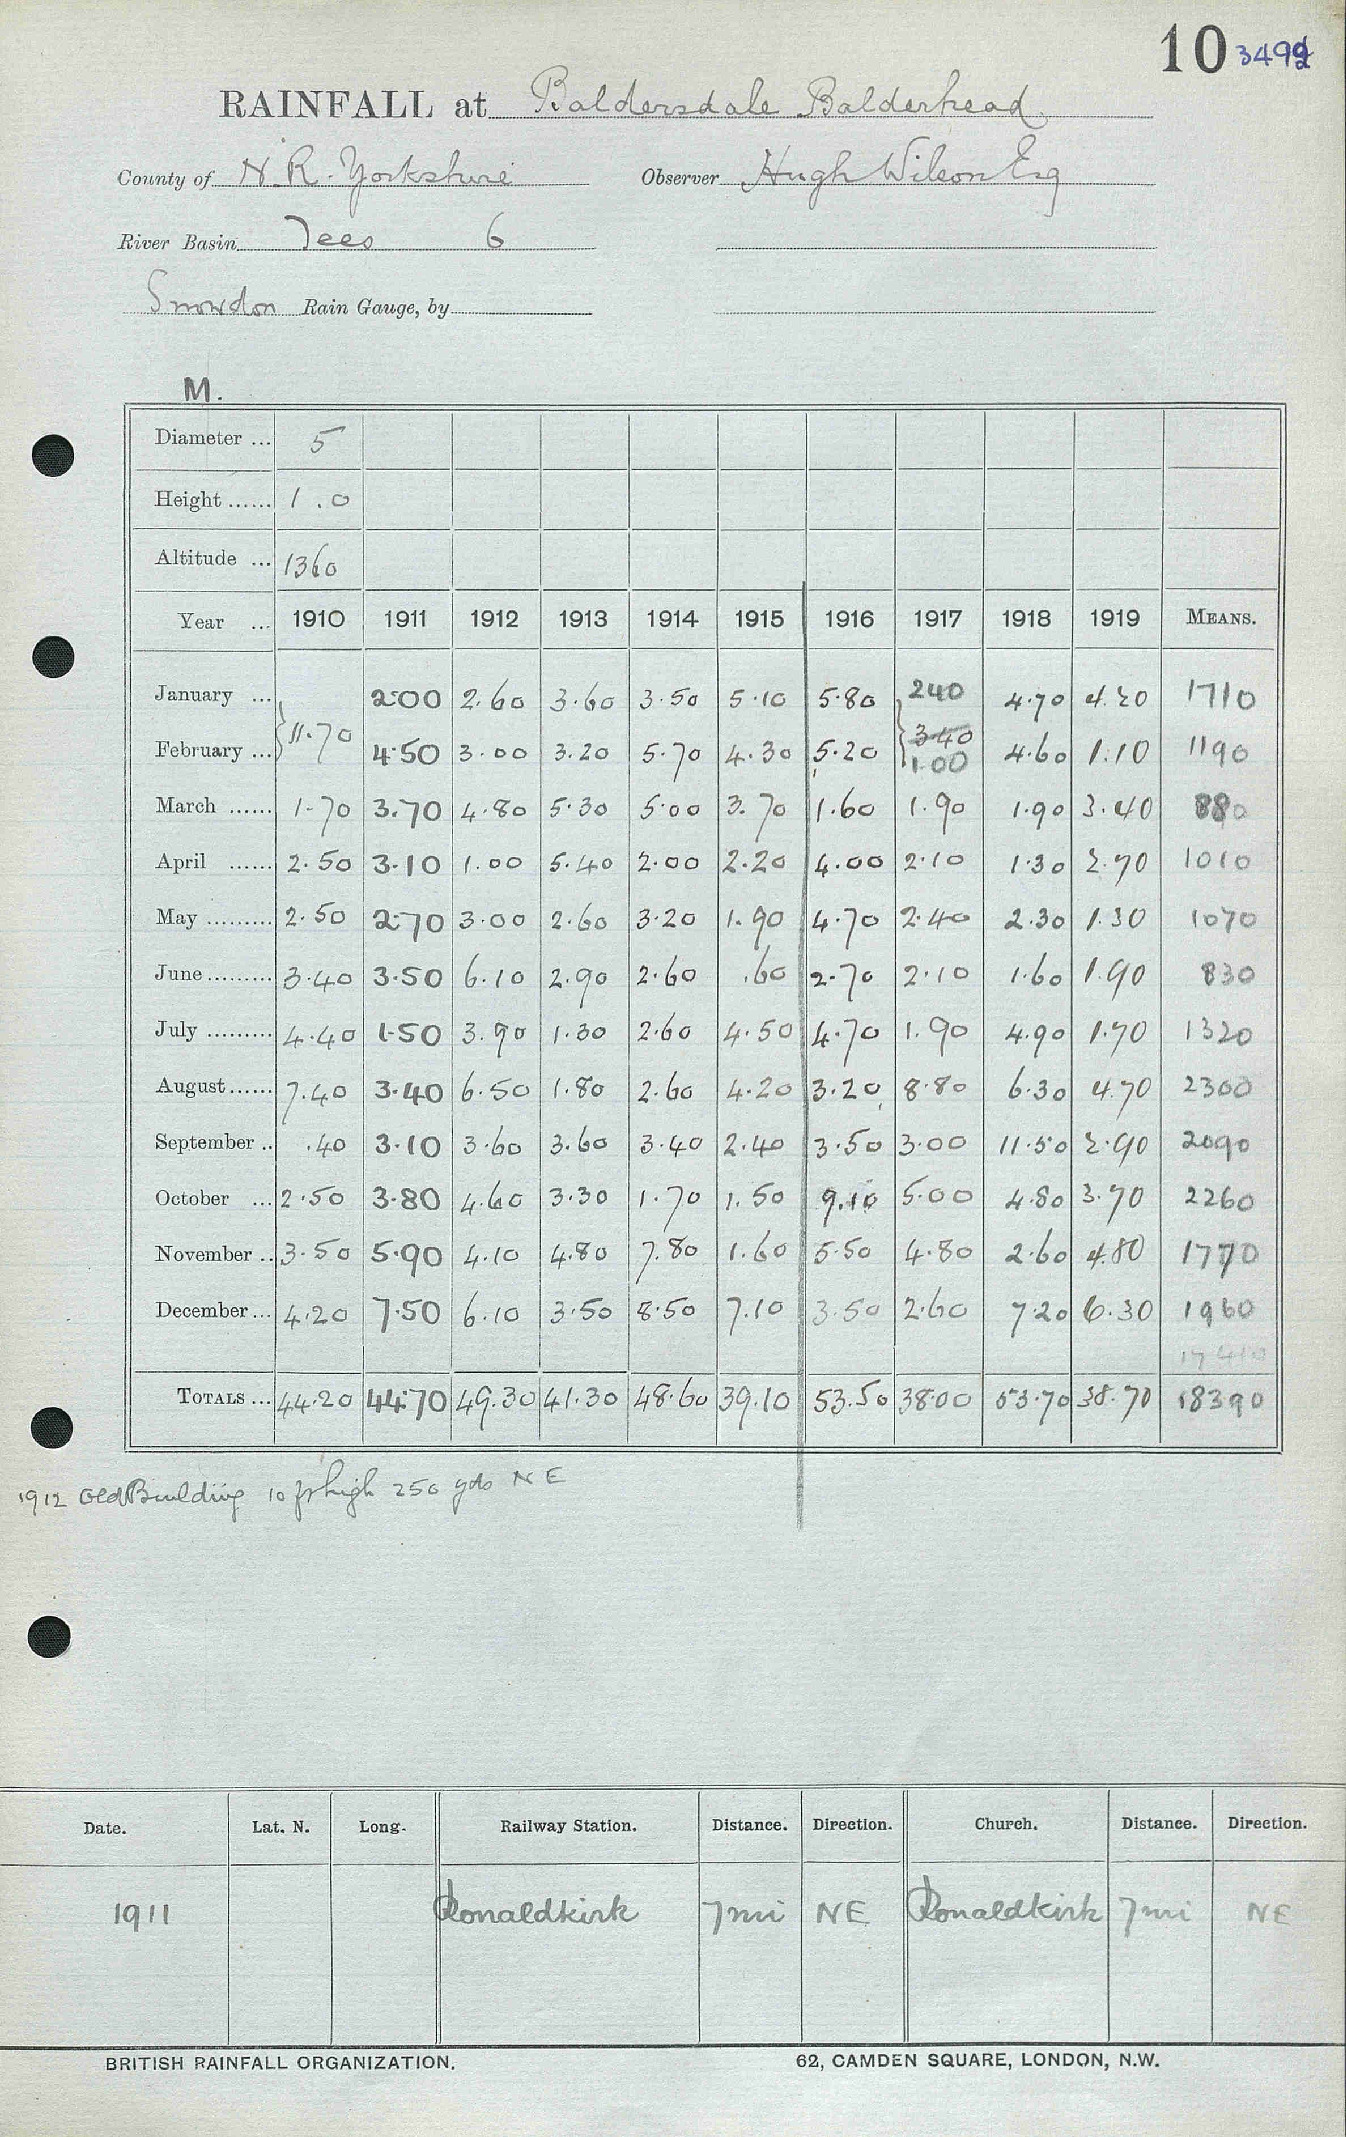 10 3492
RAINFALL at Baldersdale Balderhead
County of N.R. Yorkshire Observer Hugh Wilson Esq
River Basin Tees 6
Snowdon Rain Gauge, by
M.
Diameter ... 5
Height ...... 1.0
Altitude ... 1360
Year ... 1910 1911 1912 1913 1914 1915 1916 1917 1918 1919 MEANS.
January ... 2.00 2.60 3.60 3.50 5.10 5.80 240 4.70 4.20 1710
11.70 340
February ... 4.50 3.00 3.20 5.70 4.30 5.20 1.00 4.60 1.10 1190
March ...... 1.70 3.70 4.80 5.30 5.00 3.70 1.60 1.90 1.90 3.40 880
April ...... 2.50 3.10 1.00 5.40 2.00 2.20 4.00 2.10 1.30 2.70 1010
May ......... 2.50 2.70 3.00 2.60 3.20 1.90 4.70 2.40 2.30 1.30 1070
June ......... 3.40 3.50 6.10 2.90 2.60 .60 2.70 2.10 1.60 1.90 830
July ......... 4.40 1.50 3.90 1.30 2.60 4.50 4.70 1.90 4.90 1.70 1320
August ...... 7.40 3.40 6.50 1.80 2.60 4.20 3.20 8.80 6.30 4.70 2300
September .. .40 3.10 3.60 3.60 3.40 2.40 3.50 3.00 11.50 2.90 2090
October ... 2.50 3.80 4.60 3.30 1.70 1.50 9.10 5.00 4.80 3.70 2260
November .. 3.50 5.90 4.10 4.80 7.80 1.60 5.50 4.80 2.60 4.80 1770
December ... 4.20 7.50 6.10 3.50 8.50 7.10 3.50 2.60 7.20 6.30 1960
17410
TOTALS ... 44.20 44.70 49.30 41.30 48.60 39.10 53.50 38.00 53.70 38.70 18390
1912 Old Building 10 ft high 250 yds NE
Date. Lat. N. Long. Railway Station. Distance. Direction. Church. Distance. Direction.
1911 Romaldkirk 7 mi NE Romaldkirk 7 mi NE
BRITISH RAINFALL ORGANIZATION. 62, CAMDEN SQUARE, LONDON, N.W.